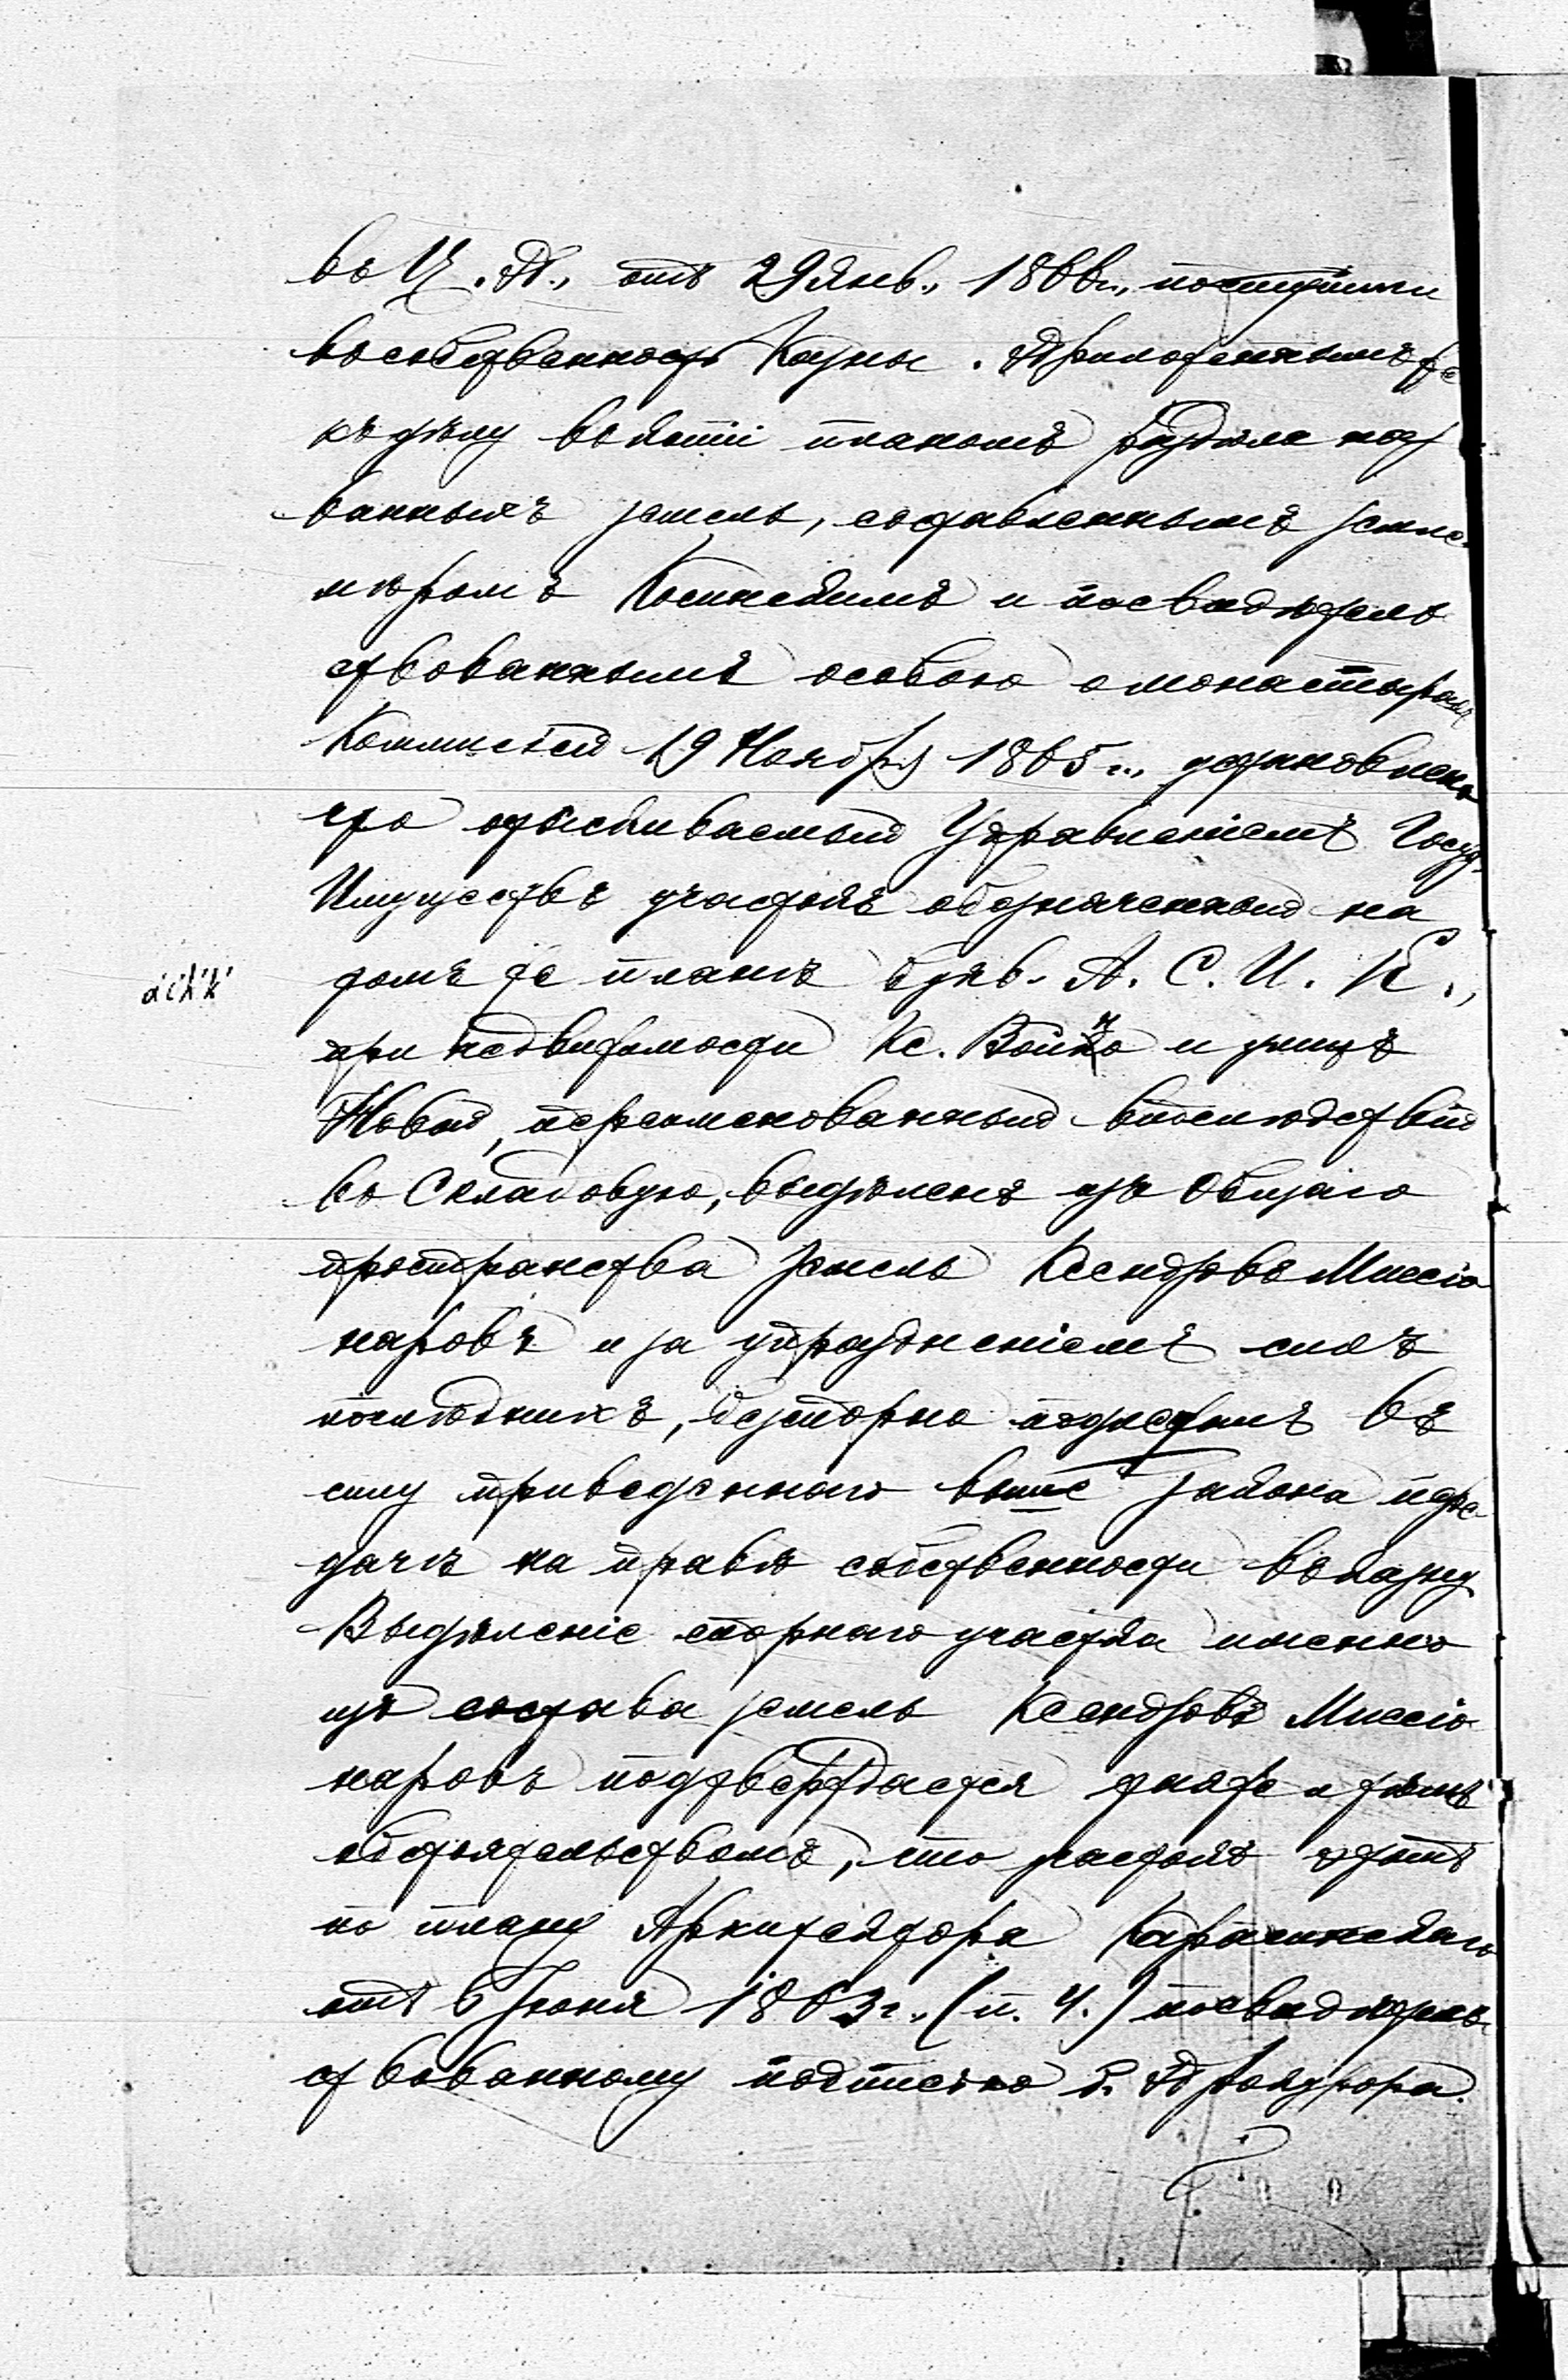 въ Ц. П., отъ 29 Янв., 1866 г., поступили
въ собственность Казны. Приложеннымъ же
къ дѣлу въ копіи планомъ раздѣла наз
ванныхъ земель, составленнымъ земле-
мѣромъ и посвидѣтель
ствованнымъ особою о монастыряхъ
Коммисіей 19 Ноября 1865 г., установлено
что отыскиваемый Управленіемъ Госуд.
Имуществъ участокъ обозначенный на
a'c'i'k'
томъ же планѣ букв. А. С. И. К.,
при недвижимости Кс. и улицѣ
Новой, переименованный впослѣдствіи
въ Складовую, выдѣленъ изъ Общаго
пространства земель Ксендзовъ Миссіо
наровъ и за упраздненіемъ сихъ
послѣднихъ, безспорно подлежитъ въ
силу приведеннаго выше закона пере-
дачѣ на правѣ собственности въ казну
Выдѣленіе спорнаго участка именно
изъ состава земель Ксендзовъ Миссіо
наровъ подтверждается также и тѣмъ
обстоятельствомъ, что участокъ этотъ
по плану Архитектора
отъ 6 Іюня 1863 г., (п. 4.) посвидѣтель-
ствованному подписью б.